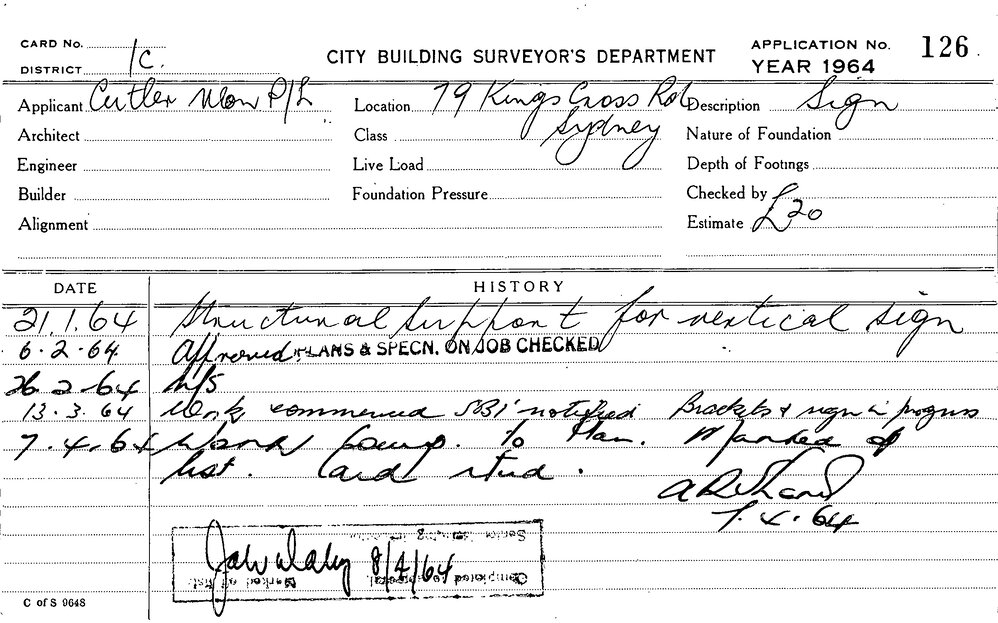 CARD No.
DISTRICT 1C.
CITY BUILDING SURVEYOR'S DEPARTMENT
APPLICATION No. 126
YEAR 1964
Applicant Cutler Mow P/L
Location 79 Kings Cross Rd
Sydney
Description Sign
Architect
Class
Nature of Foundation
Engineer
Live Load
Depth of Footings
Builder
Foundation Pressure
Checked by
Alignment
Estimate £20
DATE HISTORY
21.1.64 Structural support for vertical sign
6.2.64 Approved PLANS & SPECN. ON JOB CHECKED
26.2.64 N/S
13.3.64 Work commenced notified Brackets & sign in progress
7.4.64 Work comp. to Plan. Marked off
list. Card
7.4.64
8/4/64
Completed
Marked off list
C of S 9648